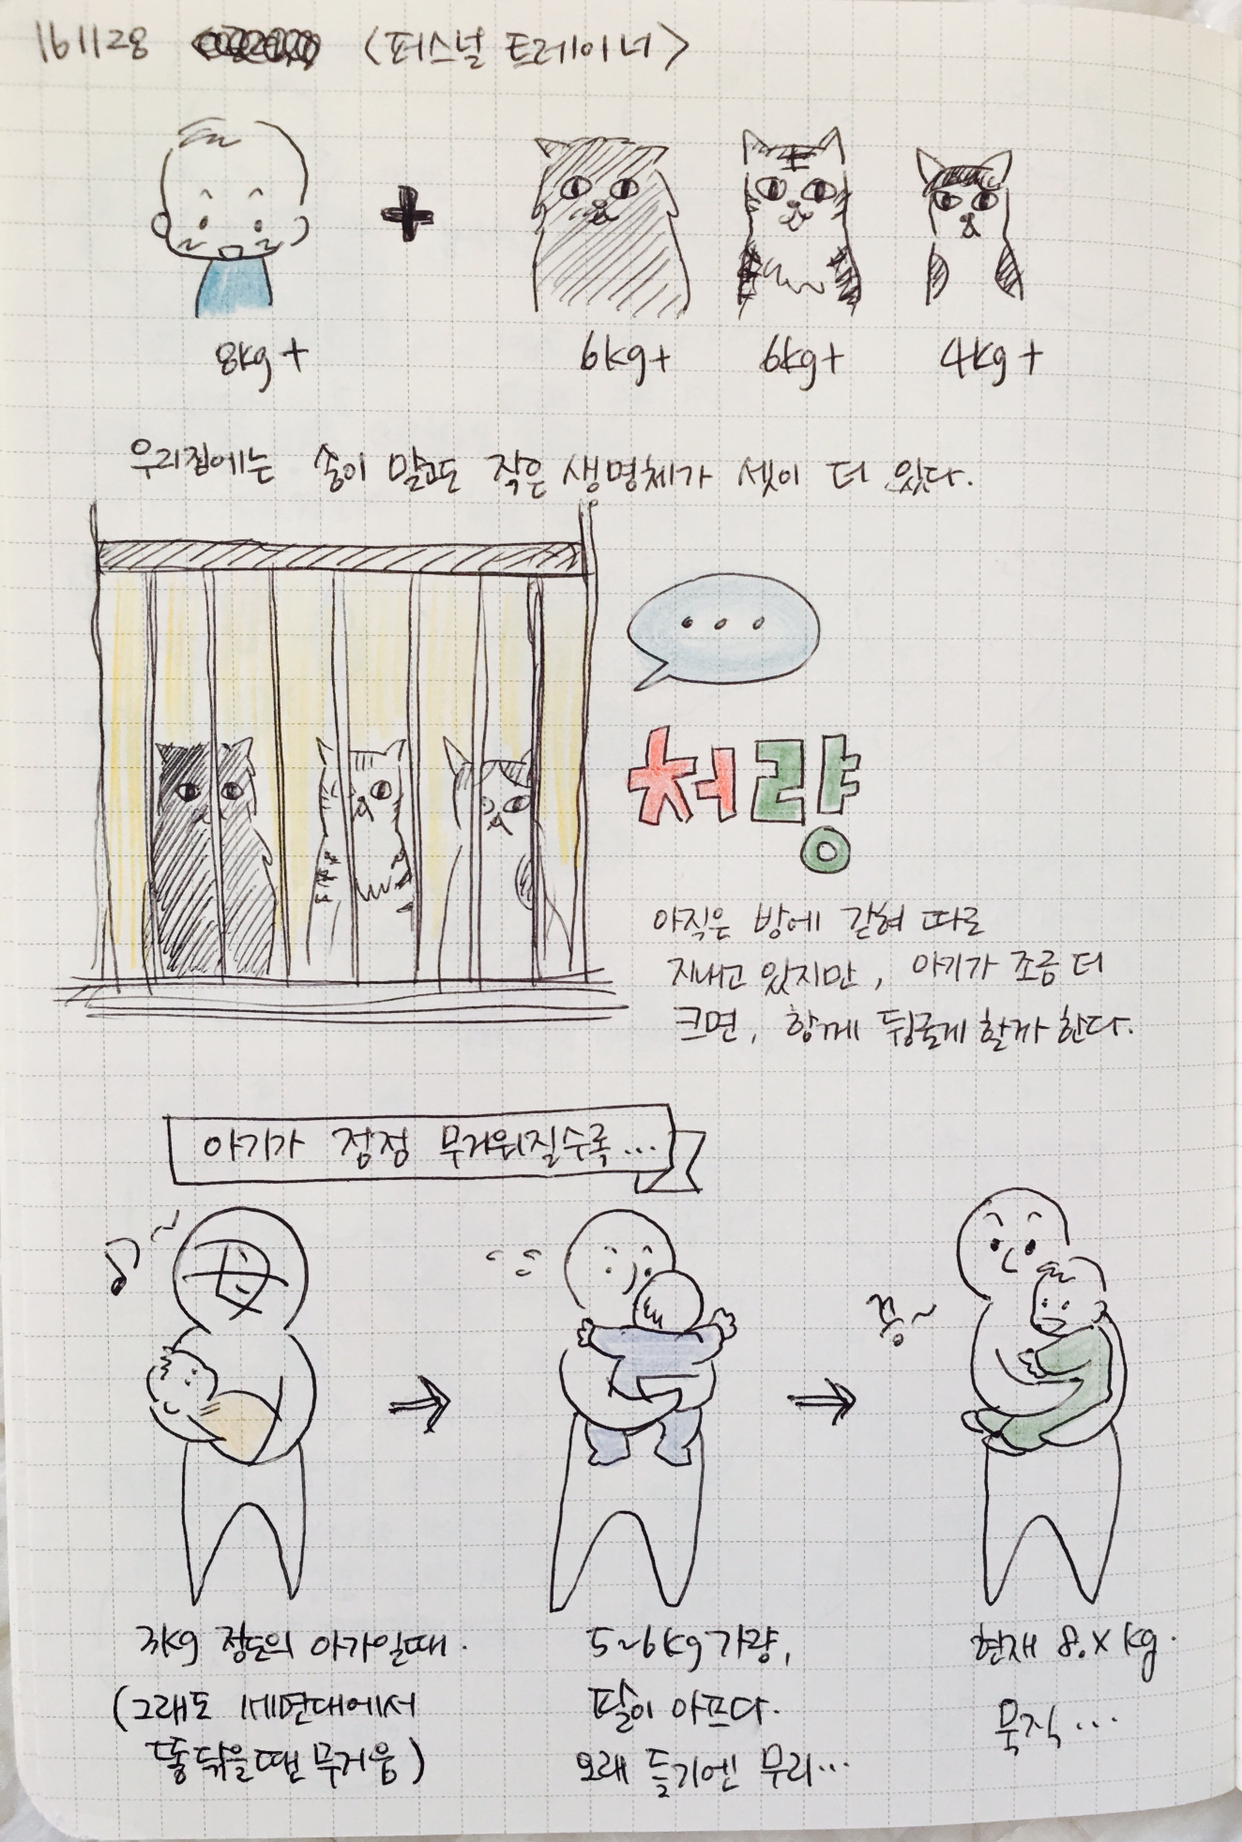 161128 <퍼스널 트레이너>
8kg+ 6kg+ 6kg+ 4kg+
우리집에는 송이 말고도 작은 생명체가 셋이 더 있다.
...
처량
아직은 방에 갇혀 따로
지내고 있지만, 아기가 조금 더
크면, 함께 뒹굴게 할까 한다.
아기가 점점 무거워질수록...
母
끙~
3kg 정도의 아가일때.
(그래도 세면대에서
똥 닦을땐 무거움)
5~6kg 가량,
팔이 아프다.
오래 들기엔 무리...
현재 8.x kg.
묵직...